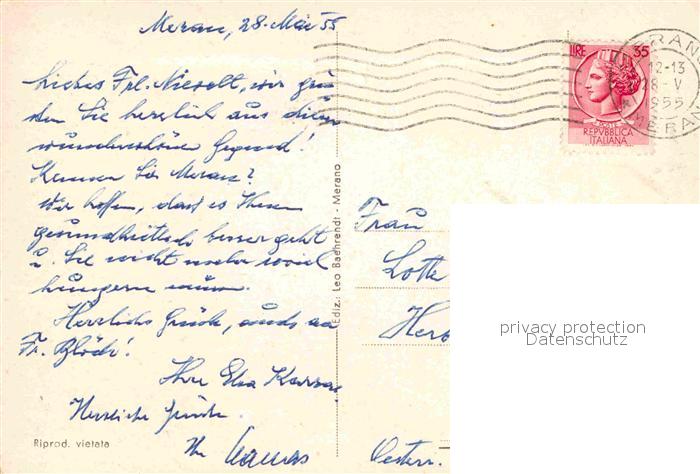 Meran, 28. Mai 55
Liebes Frl. Nievelt, wir grü-
ßen Sie herzlich aus dieser
wunderschönen Gegend!
Kennen Sie Meran?
Wir hoffen, dass es Ihnen
gesundheitlich besser geht
u. Sie nicht mehr soviel
hungern müssen.
Herzliche Grüße, auch an
Fr. Blödi!
Ihre Elsa
Herzliche Grüße
Ihr
Riprod. vietata
Ediz.: Leo Baehrendt - Merano
LIRE 35
POSTE
REPVBBLICA
ITALIANA
MERANO
12-13
28-V
1955
MERANO
Frau
Lotte
Herb
Oesterr.
privacy protection
Datenschutz